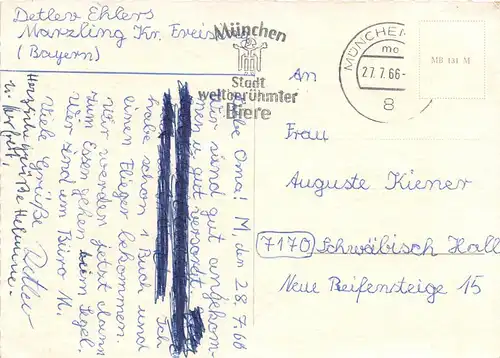 Detlev Ehlers
Marzling Kr. Freising
(Bayern)
München
Stadt
weltberühmter
Biere
MÜNCHEN
27.7.66
8
MB 131 M
An
Frau
Auguste Kiener
7170 Schwäbisch Hall
Neue Reifensteige 15
M, den 28.7.66
Liebe Oma!
Wir sind gut angekom-
men u. gut versorgt.
Ich
habe schon 1 Buch und
einen Flieger bekommen.
Wir werden jetzt dann
zum Essen gehen beim Segl.
Wir sind im Büro M.
Viele Grüße Detlev
Herzliche Grüße Helmine